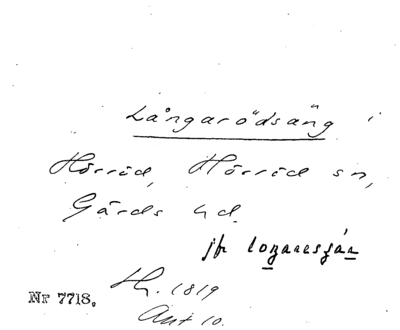 Långarödsäng i
Hörröd, Hörröd sn,
Gärds hd.
jfr
Nr 7718.
H. 1819
Akt 10.